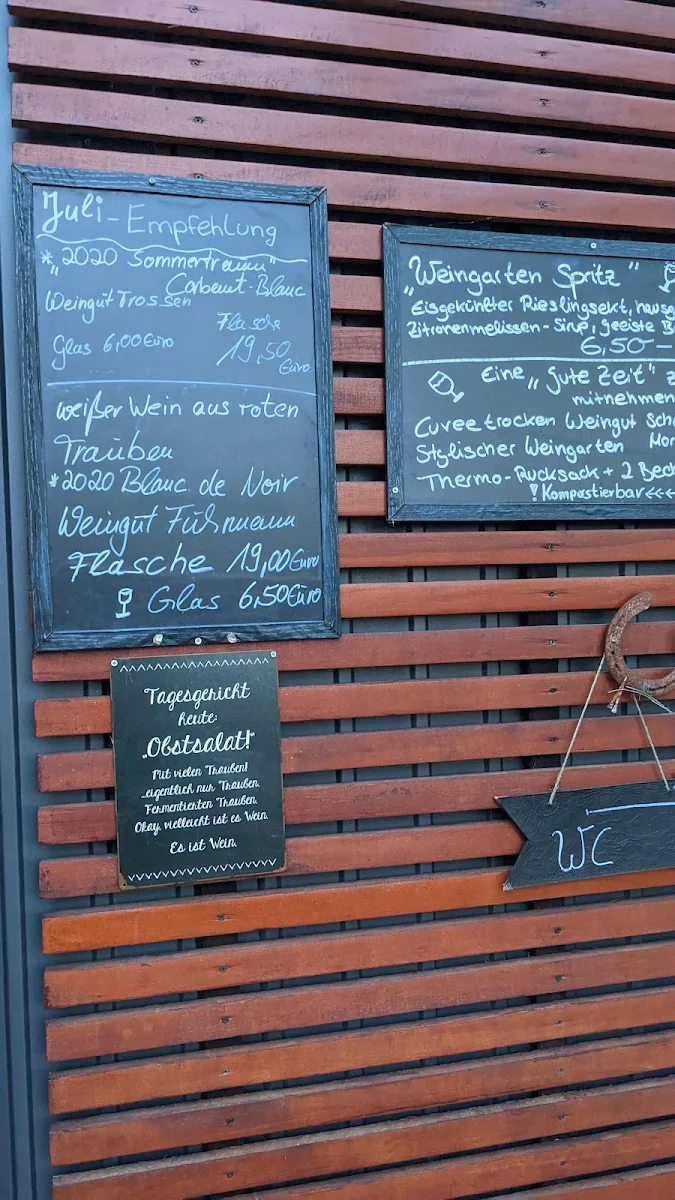 Juli - Empfehlung
* „2020 Sommertraum"
Cabernet-Blanc
Weingut Trossen
Flasche
Glas 6,00 Euro
19,50
Euro
weißer Wein aus roten
Trauben
*2020 Blanc de Noir
Weingut Führmann
Flasche 19,00 Euro
Glas 6,50 Euro
Tagesgericht
heute:
„Obstsalat!"
Mit vielen Trauben!
...eigentlich nur Trauben.
Fermentierten Trauben.
Okay, vielleicht ist es Wein.
Es ist Wein.
„Weingarten Spritz"
Eisgekühlter Rieslingsekt, hausg
Zitronenmelissen-Sirup, geeiste B
6,50 -
Eine „gute Zeit" z
mitnehmen
Cuvee trocken Weingut Sch
Stylischer Weingarten Mor
Thermo-Rucksack + 2 Bech
! Kompostierbar <<<
WC